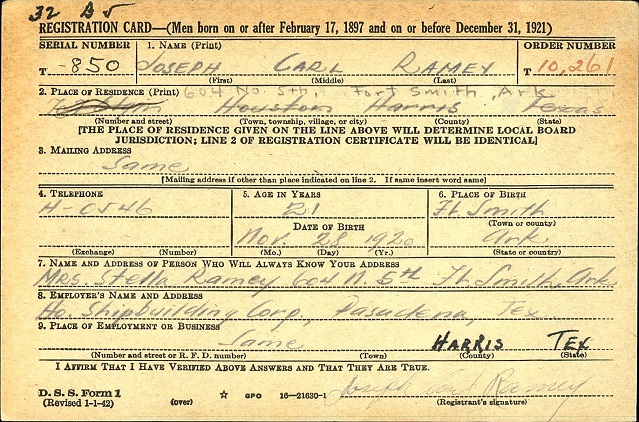 32 B 5
REGISTRATION CARD—(Men born on or after February 17, 1897 and on or before December 31, 1921)
SERIAL NUMBER 1. NAME (Print) ORDER NUMBER
T -850 JOSEPH CARL RAMEY T 10,261
(First) (Middle) (Last)
2. PLACE OF RESIDENCE (Print) 604 No. 5th, Fort Smith, Ark
Houston Harris Texas
(Number and street) (Town, township, village, or city) (County) (State)
[THE PLACE OF RESIDENCE GIVEN ON THE LINE ABOVE WILL DETERMINE LOCAL BOARD
JURISDICTION; LINE 2 OF REGISTRATION CERTIFICATE WILL BE IDENTICAL]
3. MAILING ADDRESS
Same
[Mailing address if other than place indicated on line 2. If same insert word same]
4. TELEPHONE 5. AGE IN YEARS 6. PLACE OF BIRTH
H-0546 21 Ft. Smith
DATE OF BIRTH (Town or county)
Nov. 28 1920 Ark
(Exchange) (Number) (Mo.) (Day) (Yr.) (State or country)
7. NAME AND ADDRESS OF PERSON WHO WILL ALWAYS KNOW YOUR ADDRESS
Mrs. Stella Ramey 604 N. 5th Ft Smith, Ark.
8. EMPLOYER'S NAME AND ADDRESS
Ho. Shipbuilding Corp, Pasadena, Tex
9. PLACE OF EMPLOYMENT OR BUSINESS
Same HARRIS TEX
(Number and street or R. F. D. number) (Town) (County) (State)
I AFFIRM THAT I HAVE VERIFIED ABOVE ANSWERS AND THAT THEY ARE TRUE.
D. S. S. Form 1 Joseph Carl Ramey
(Revised 1-1-42) (over) ☆ GPO 16—21630-1 (Registrant's signature)